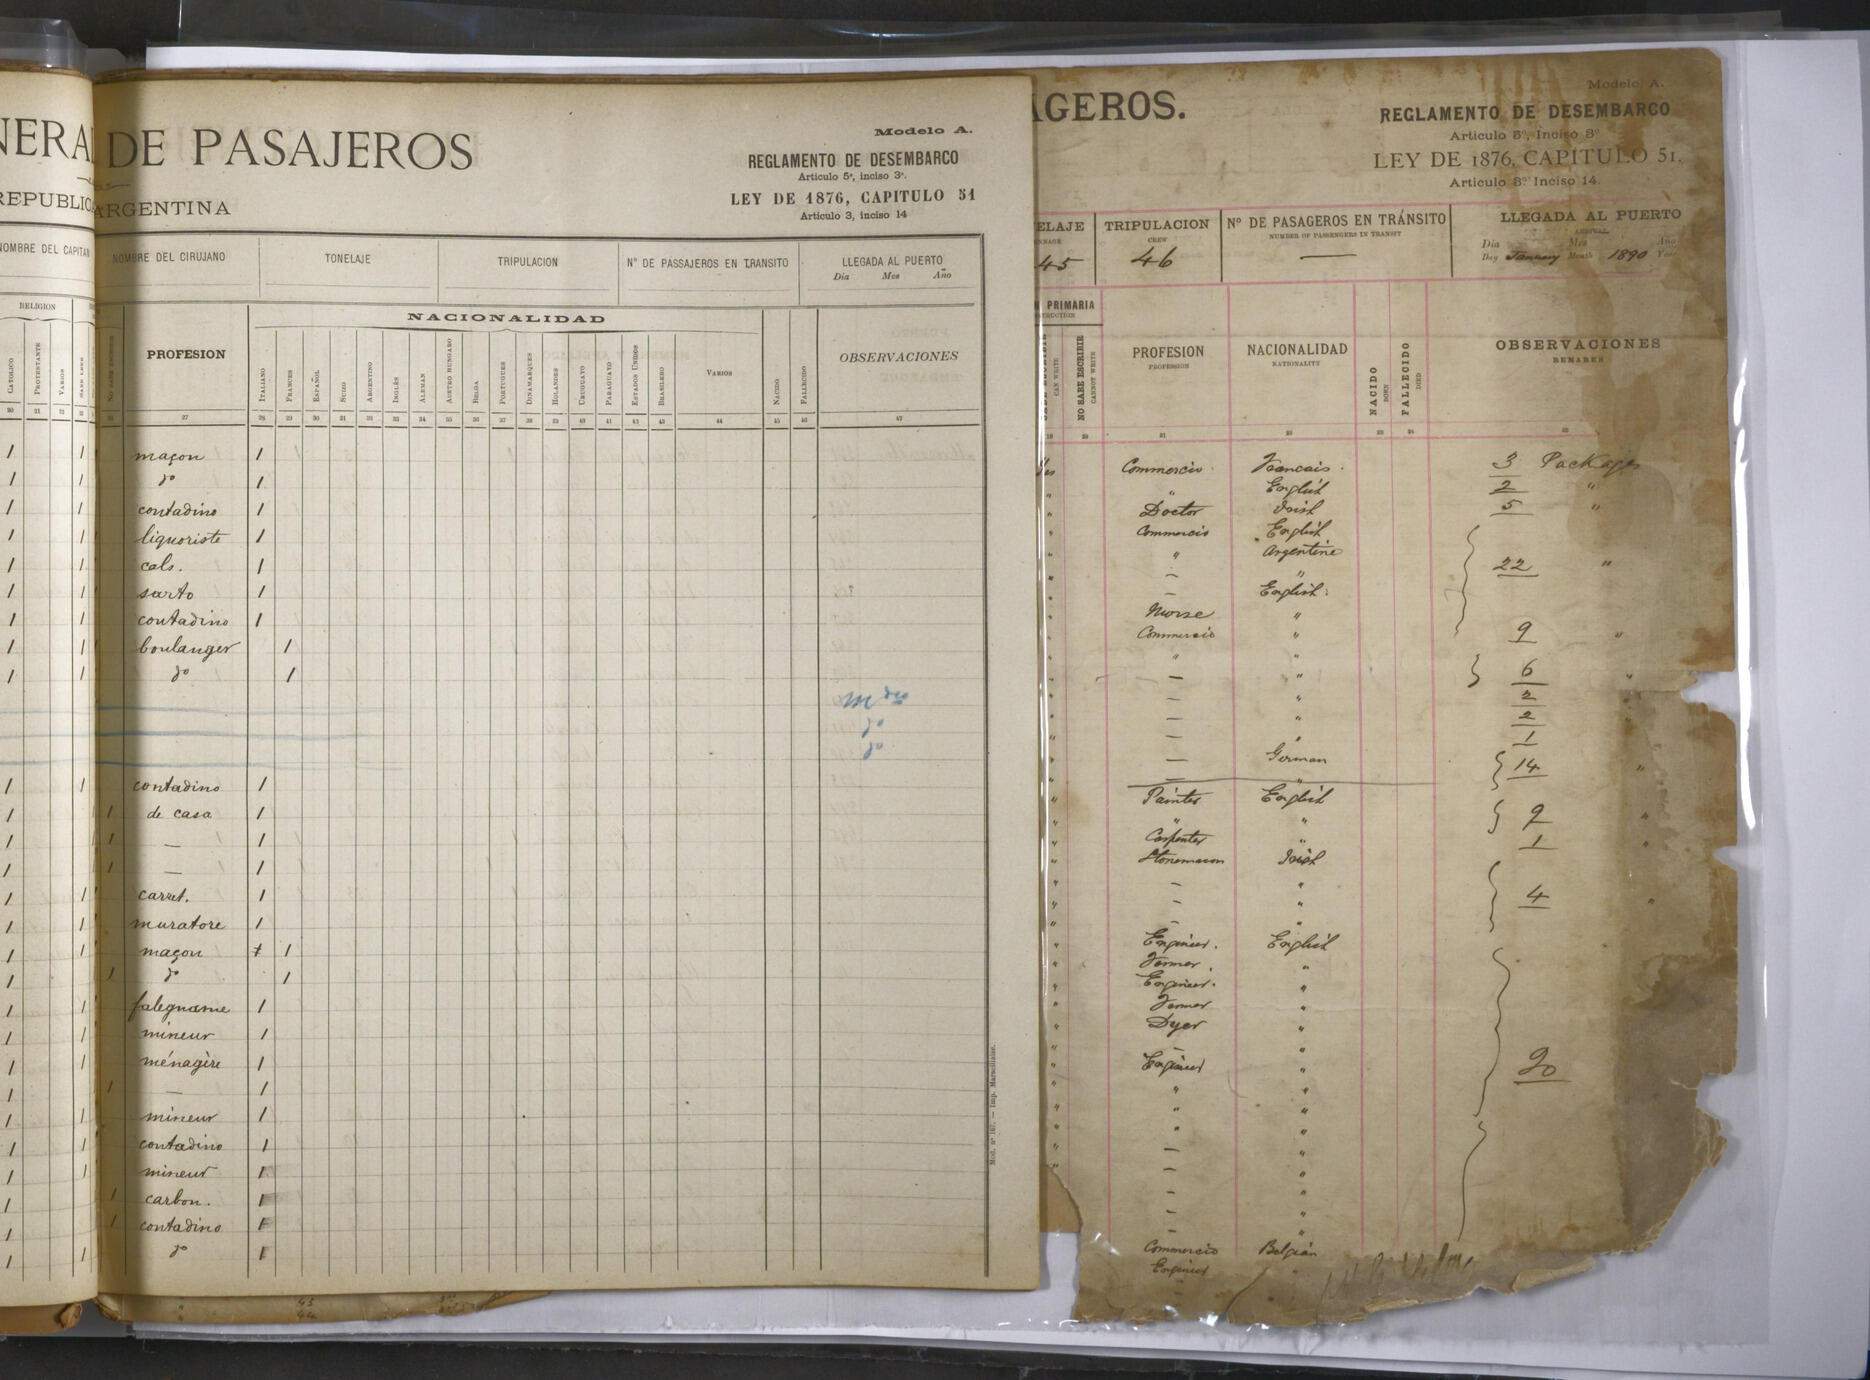 NERAL DE PASAJEROS
REPUBLICA ARGENTINA
Modelo A.
REGLAMENTO DE DESEMBARCO
Articulo 5º, inciso 3º.
LEY DE 1876, CAPITULO 51
Articulo 3, inciso 14
NOMBRE DEL CAPITAN
NOMBRE DEL CIRUJANO
TONELAJE
TRIPULACION
Nº DE PASSAJEROS EN TRANSITO
LLEGADA AL PUERTO
Dia Mes Año
RELIGION
CATOLICO
PROTESTANTE
VARIOS
PROFESION
NACIONALIDAD
ITALIANO
FRANCES
ESPAÑOL
SUIZO
ARGENTINO
INGLÉS
ALEMAN
AUSTRO HUNGARO
BELGA
PORTUGUES
DINAMARQUES
HOLANDES
URUGUAYO
PARAGUAYO
ESTADOS UNIDES
BRASILERO
VARIOS
NACIDO
FALLECIDO
OBSERVACIONES
20 21 22 27 28 29 30 31 32 33 34 35 36 37 38 39 40 41 42 43 44 45 46 47
1 1 maçon 1
1 1 dº 1
1 1 contadino 1
1 1 liquoriste 1
1 1 cals. 1
1 1 sarto 1
1 1 contadino 1
1 1 boulanger 1
1 1 dº 1
dº
dº
1 1 contadino 1
1 1 de casa 1
1 1 — 1
1 1 — 1
1 1 carret. 1
1 1 muratore 1
1 1 maçon 1 1
1 1 dº 1
1 1 falegname 1
1 1 mineur 1
1 1 ménagère 1
1 1 — 1
1 1 mineur 1
1 1 contadino 1
1 1 mineur 1
1 1 carbon. 1
1 1 contadino 1
1 1 dº 1
Mod. nº 167. — Imp. Marseillaise.
AGEROS.
Modelo A.
REGLAMENTO DE DESEMBARCO
Articulo 5º, Inciso 3º
LEY DE 1876, CAPITULO 51.
Articulo 3º Inciso 14.
ELAJE
NNAGE
45
TRIPULACION
CREW
46
Nº DE PASAGEROS EN TRÁNSITO
NUMBER OF PASSENGERS IN TRANSIT
—
LLEGADA AL PUERTO
ARRIVAL
Dia Mes Año
Day January Month 1890 Year
N PRIMARIA
STRUCTION
CAN WRITE
NO SABE ESCRIBIR
CANNOT WRITE
PROFESION
PROFESSION
NACIONALIDAD
NATIONALITY
NACIDO
BORN
FALLECIDO
DIED
OBSERVACIONES
REMARKS
19 20 21 22 23 24 25
Yes Commercio Francais. 3 Packages
" " English 2 "
" Doctor Irish 5 "
" Commercio English
" " Argentine
" — " 22 "
" — English
" Nurse "
" Commercio " 9 "
" " "
" — " 6 "
" — " 2
" — " 2
" — " 1
" — German 14 "
" — "
" Painter English
" " " 9 "
" Carpenter " 1 "
" Stonemason Irish
" — "
" — " 4 "
" — "
" Engineer. English
" Farmer "
" Engineer. "
" Farmer "
" Dyer "
" — "
" Engineer " 20
" " "
" " "
" " "
" — "
" — "
— "
— "
— "
Commercio Belgian
Engineer "
43
44